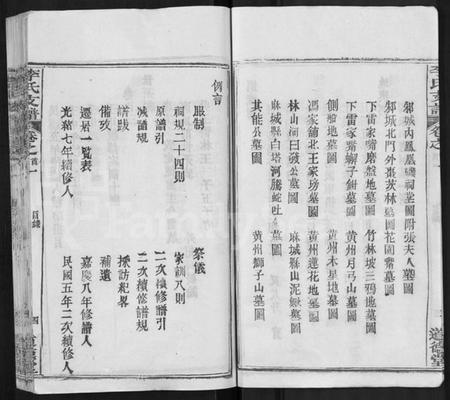 李氏支譜
卷之首
鄀城內鳳凰磯祠堂圖附張夫人墓圖
城北門外棗茨林墓圖花園
下雷家嘴磨盤地墓圖
竹林坡三鴉地墓圖
下雷家嘴
子鉗墓圖
黃州月弓山墓圖
側船地墓圖
黃州木星地墓圖
馮家舖北王家塝墓圖
黃州蓮花地墓圖
林山河曰發公墓圖
麻城縣山泥鰍墓圖
麻城縣白塔河騰蛇吐
墓圖
其能公墓圖
黃州獅子山墓圖
例言
服制
祭儀
祠規二十四則
家訓八則
原譜引
二次續修譜引
減譜規
二次續修譜規
譜跋
採訪紀畧
備攷
補遺
遷居一覽表
嘉慶八年修譜人
光緒七年續修人
民國五年二次續修人
李氏支譜
卷之首
目錄
四
道德堂